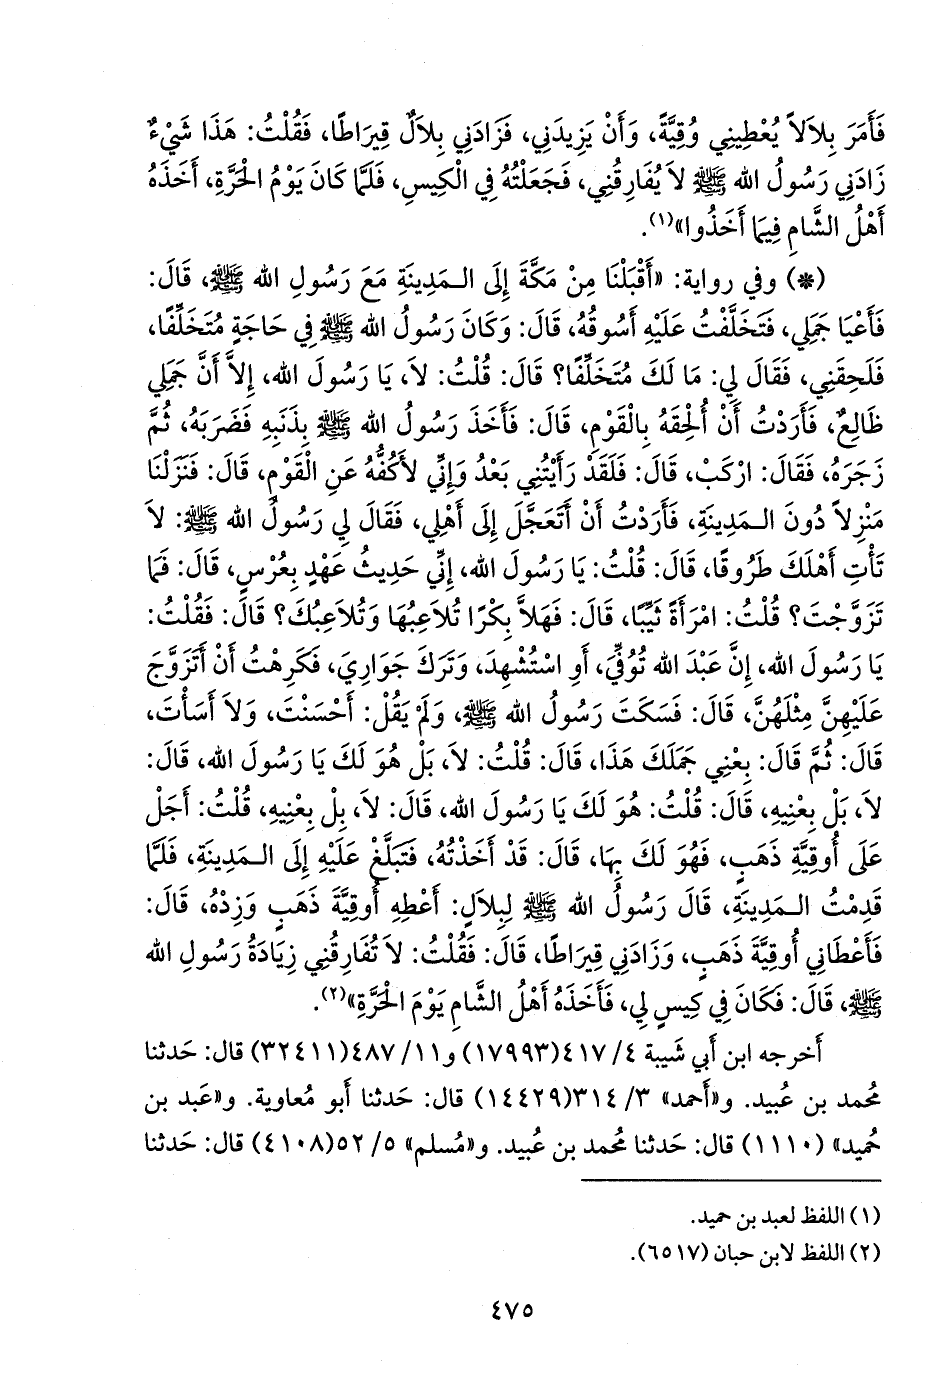 فَأَمَرَ بِلاَلاً يُعْطِينِي وُقِيَّةً، وَأَنْ يَزِيدَنِي، فَزَادَنِي بِلاَلٌ قِيرَاطًا، فَقُلْتُ: هَذَا شَيْءٌ
زَادَنِي رَسُولُ الله ﷺ لاَ يُفَارِقُنِي، فَجَعَلْتُهُ فِي الْكِيسِ، فَلَمَّا كَانَ يَوْمُ الْحَرَّةِ، أَخَذَهُ
أَهْلُ الشَّامِ فِيمَا أَخَذُوا»(١).
(*) وفي رواية: «أَقْبَلْنَا مِنْ مَكَّةَ إِلَى الـمَدِينَةِ مَعَ رَسُولِ الله ﷺ، قَالَ:
فَأَعْيَا جَمَلِي، فَتَخَلَّفْتُ عَلَيْهِ أَسُوقُهُ، قَالَ: وَكَانَ رَسُولُ الله ﷺ فِي حَاجَةٍ مُتَخَلِّفًا،
فَلَحِقَنِي، فَقَالَ لِي: مَا لَكَ مُتَخَلِّفًا؟ قَالَ: قُلْتُ: لاَ، يَا رَسُولَ الله، إِلاَّ أَنَّ جَمَلِي
ظَالِعٌ، فَأَرَدْتُ أَنْ أُلْحِقَهُ بِالْقَوْمِ، قَالَ: فَأَخَذَ رَسُولُ الله ﷺ بِذَنَبِهِ فَضَرَبَهُ، ثُمَّ
زَجَرَهُ، فَقَالَ: ارْكَبْ، قَالَ: فَلَقَدْ رَأَيْتُنِي بَعْدُ وَإِنِّي لأَكُفُّهُ عَنِ الْقَوْمِ، قَالَ: فَنَزَلْنَا
مَنْزِلاً دُونَ الـمَدِينَةِ، فَأَرَدْتُ أَنْ أَتَعَجَّلَ إِلَى أَهْلِي، فَقَالَ لِي رَسُولُ الله ﷺ: لاَ
تَأْتِ أَهْلَكَ طَرُوقًا، قَالَ: قُلْتُ: يَا رَسُولَ الله، إِنِّي حَدِيثُ عَهْدٍ بِعُرْسٍ، قَالَ: فَمَا
تَزَوَّجْتَ؟ قُلْتُ: امْرَأَةً ثَيِّبًا، قَالَ: فَهَلاَّ بِكْرًا تُلاَعِبُهَا وَتُلاَعِبُكَ؟ قَالَ: فَقُلْتُ:
يَا رَسُولَ الله، إِنَّ عَبْدَ الله تُوُفِّيَ، أَوِ اسْتُشْهِدَ، وَتَرَكَ جَوَارِيَ، فَكَرِهْتُ أَنْ أَتَزَوَّجَ
عَلَيْهِنَّ مِثْلَهُنَّ، قَالَ: فَسَكَتَ رَسُولُ الله ﷺ، وَلَمْ يَقُلْ: أَحْسَنْتَ، وَلاَ أَسَأْتَ،
قَالَ: ثُمَّ قَالَ: بِعْنِي جَمَلَكَ هَذَا، قَالَ: قُلْتُ: لاَ، بَلْ هُوَ لَكَ يَا رَسُولَ الله، قَالَ:
لاَ، بَلْ بِعْنِيهِ، قَالَ: قُلْتُ: هُوَ لَكَ يَا رَسُولَ الله، قَالَ: لاَ، بِلْ بِعْنِيهِ، قُلْتُ: أَجَلْ
عَلَى أُوقِيَّةِ ذَهَبٍ، فَهُوَ لَكَ بِهَا، قَالَ: قَدْ أَخَذْتُهُ، فَتَبَلَّغْ عَلَيْهِ إِلَى الـمَدِينَةِ، فَلَمَّا
قَدِمْتُ الـمَدِينَةِ، قَالَ رَسُولُ الله ﷺ لِبِلاَلٍ: أَعْطِهِ أُوقِيَّةَ ذَهَبٍ وَزِدْهُ، قَالَ:
فَأَعْطَانِي أُوقِيَّةَ ذَهَبٍ، وَزَادَنِي قِيرَاطًا، قَالَ: فَقُلْتُ: لاَ تُفَارِقُنِي زِيَادَةُ رَسُولِ الله
ﷺ، قَالَ: فَكَانَ فِي كِيسٍ لِي، فَأَخَذَهُ أَهْلُ الشَّامِ يَوْمَ الْحَرَّةِ»(٢).
أخرجه ابن أبي شَيبة ٤/ ٤١٧(١٧٩٩٣) و١١/ ٤٨٧(٣٢٤١١) قال: حَدثنا
مُحمد بن عُبيد. و«أَحمد» ٣/ ٣١٤(١٤٤٢٩) قال: حَدثنا أَبو مُعاوية. و«عَبد بن
حُميد» (١١١٠) قال: حَدثنا مُحمد بن عُبيد. و«مُسلم» ٥/ ٥٢(٤١٠٨) قال: حَدثنا
(١) اللفظ لعبد بن حميد.
(٢) اللفظ لابن حبان (٦٥١٧).
٤٧٥